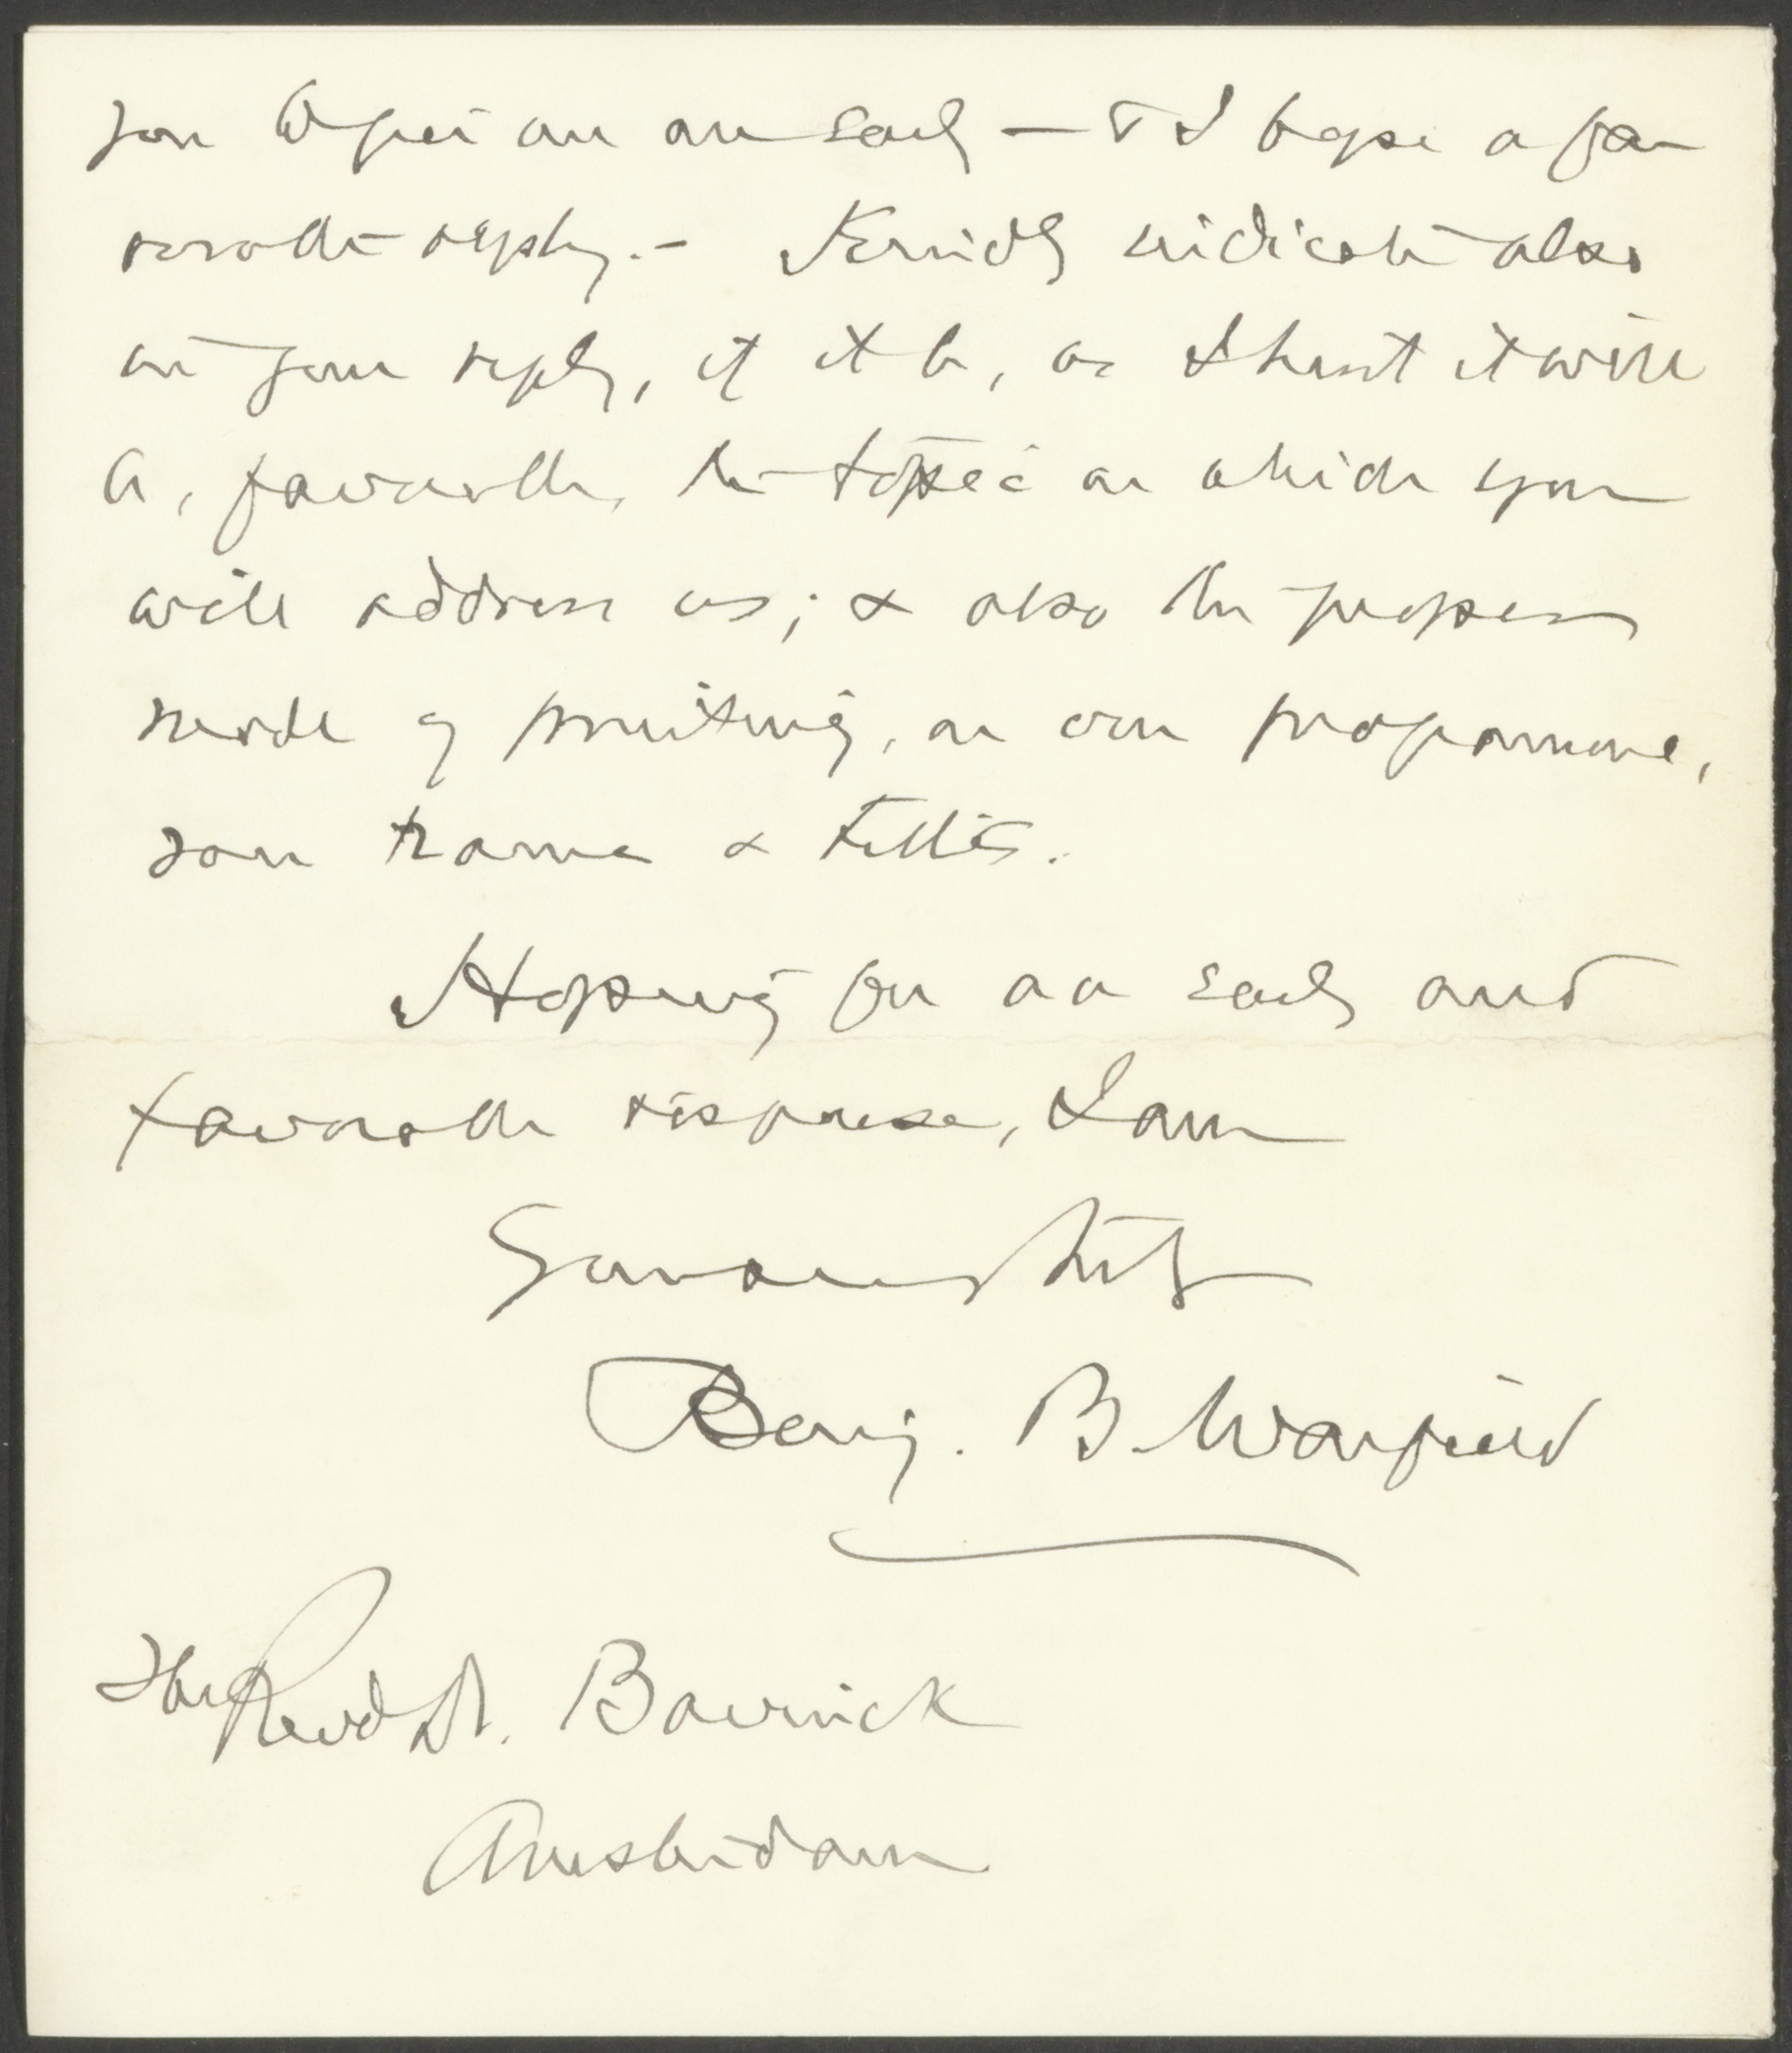 you to give me an early — & I hope a fa-
vorable reply. – Kindly indicate also
in your reply, if it be, as I trust it will
be, favorable, the topic on which you
will address us; & also the proper
mode of printing, on our programme,
your name & titles.
Hoping for an early and
favorable response, I am
Yours very truly
Benj. B. Warfield
The Revd Dr. Bavinck
Amsterdam